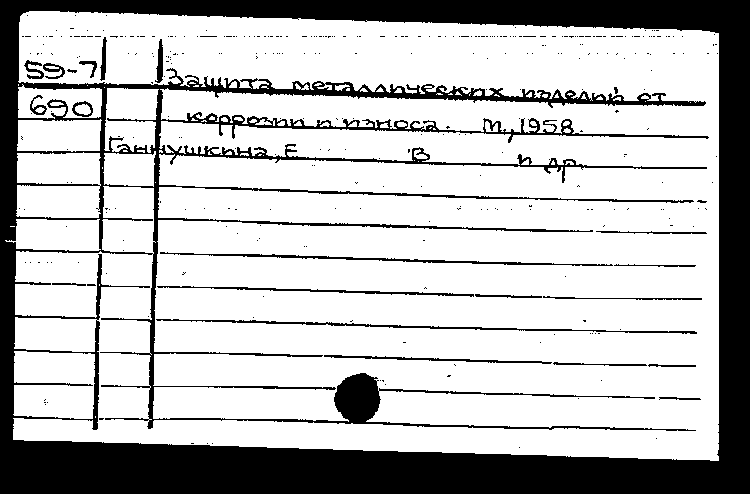 59-7 Защита металлических изделий от
690 коррозии и износа. М., 1958.
Ганнушкина, Е В и др.